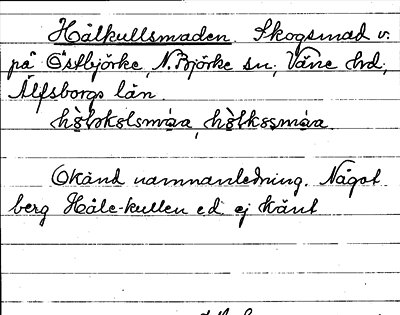 Hålkullsmaden. Skogsmad v.
på Östbjörke, N. Björke sn, Väne hd,
Älfsborgs län.
Okänd namnanledning. Något
berg Håle-kullen ed ej känt